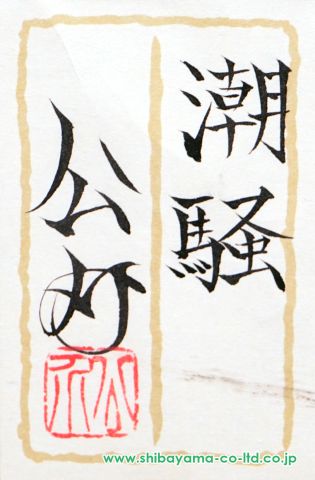 潮騒
公
www.shibayama-co-ltd.co.jp